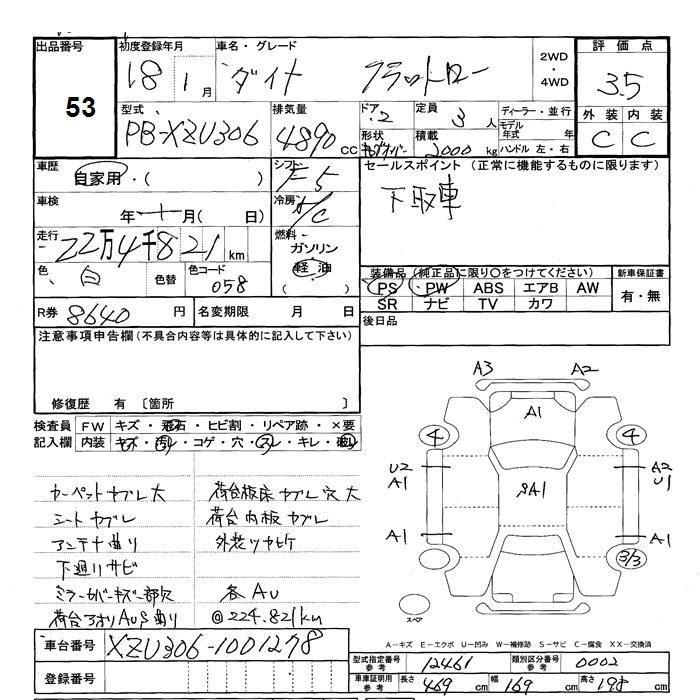 出品番号
53
初度登録年月
18 1 月
車名・グレード
ダイナ フラットロー
2WD・4WD
評価点
3.5
外装 内装
C C
型式
PB-XZU306
排気量
4890 cc
ドア
2
形状
定員
3 人
積載
2000 kg
ディーラー・並行
モデル年式 年
ハンドル 左・右
車歴
自家用・( )
シフト
F5
セールスポイント(正常に機能するものに限ります)
下取車
車検
年 月( 日)
冷房
A/C
走行
22万4千821 km
燃料
ガソリン
軽油
( )
色
白
色替
色コード
058
装備品(純正品に限り○をつけてください)
PS PW ABS エアB AW
SR ナビ TV カワ
新車保証書
有・無
R券 8640 円
名変期限 月 日
後日品
注意事項申告欄(不具合内容等は具体的に記入して下さい)
修復歴 有 〔箇所 〕
検査員記入欄
FW キズ・飛石・ヒビ割・リペア跡・×要
内装 キズ・汚レ・コゲ・穴・スレ・キレ・
カーペットヤブレ大
シートヤブレ
アンテナ曲り
下廻りサビ
ミラーカバーキズ一部欠
荷台アオリAUS曲り
荷台板床ヤブレ穴大
荷台内板ヤブレ
外装ツヤビケ
各AU
◎224.821km
A3 A2
A1
4 4
U2
A1
A2
U1
SA1
A1 A1
3/3
スペア
A-キズ E-エクボ U-凹み W-補修跡 S-サビ C-腐食 XX-交換済
車台番号 XZU306-1001278
登録番号
型式指定番号 参考 12461
類別区分番号 参考 0002
車庫証明用 参考 長さ 469 cm 幅 169 cm 高さ 198 cm